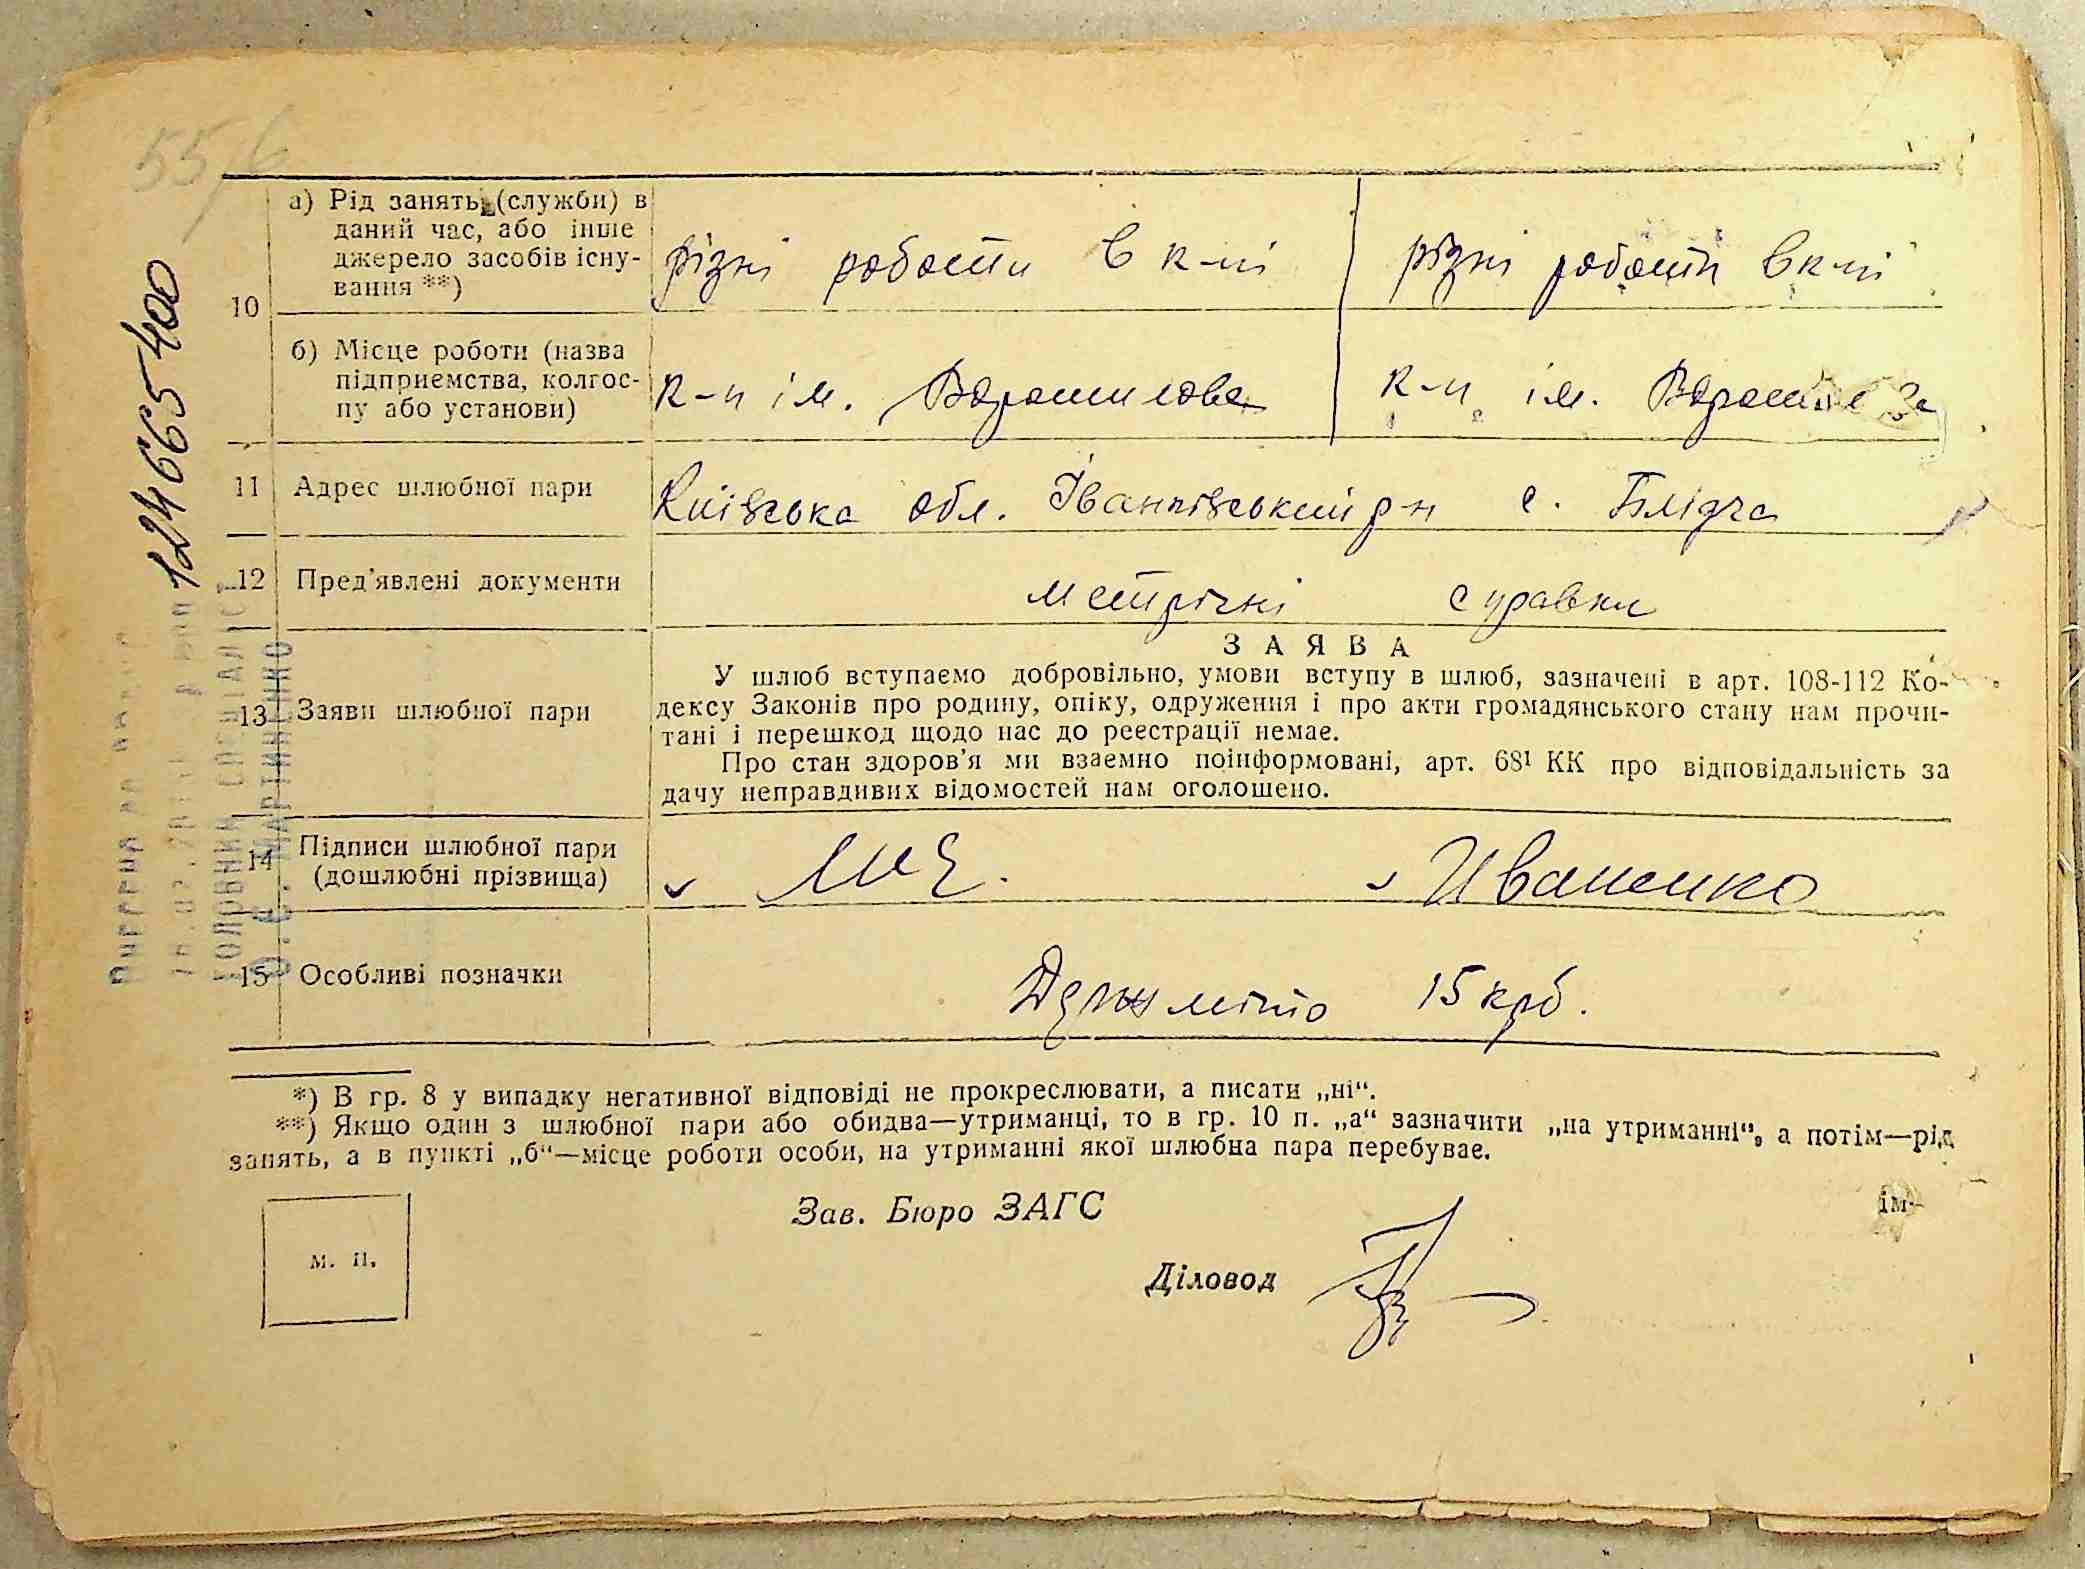 55/6
а) Рід занять (служби) в
даний час, або інше
джерело засобів існу-
вання **)
різні роботи в к-пі
різні роботи в к-пі
10
б) Місце роботи (назва
підприємства, колгос-
пу або установи)
к-п ім. Ворошилова
к-п ім. Ворошилова
11 Адрес шлюбної пари
Київська обл. Іванківський р-н с. Блідча
12 Пред'явлені документи
метрічні справки
13 Заяви шлюбної пари
ЗАЯВА
У шлюб вступаємо добровільно, умови вступу в шлюб, зазначені в арт. 108-112 Ко-
дексу Законів про родину, опіку, одруження і про акти громадянського стану нам прочи-
тані і перешкод щодо нас до реєстрації немає.
Про стан здоров'я ми взаємно поінформовані, арт. 68¹ КК про відповідальність за
дачу неправдивих відомостей нам оголошено.
14 Підписи шлюбної пари
(дошлюбні прізвища)
Иваненко
15 Особливі позначки
Держмито 15 крб.
*) В гр. 8 у випадку негативної відповіді не прокреслювати, а писати „ні“.
**) Якщо один з шлюбної пари або обидва—утриманці, то в гр. 10 п. „а“ зазначити „на утриманні“, а потім—рід
занять, а в пункті „б“—місце роботи особи, на утриманні якої шлюбна пара перебуває.
Зав. Бюро ЗАГС
ім-
м. п.
Діловод
124665400
ГОЛОВНИЙ СПЕЦІАЛІСТ
МАРТИНЕНКО